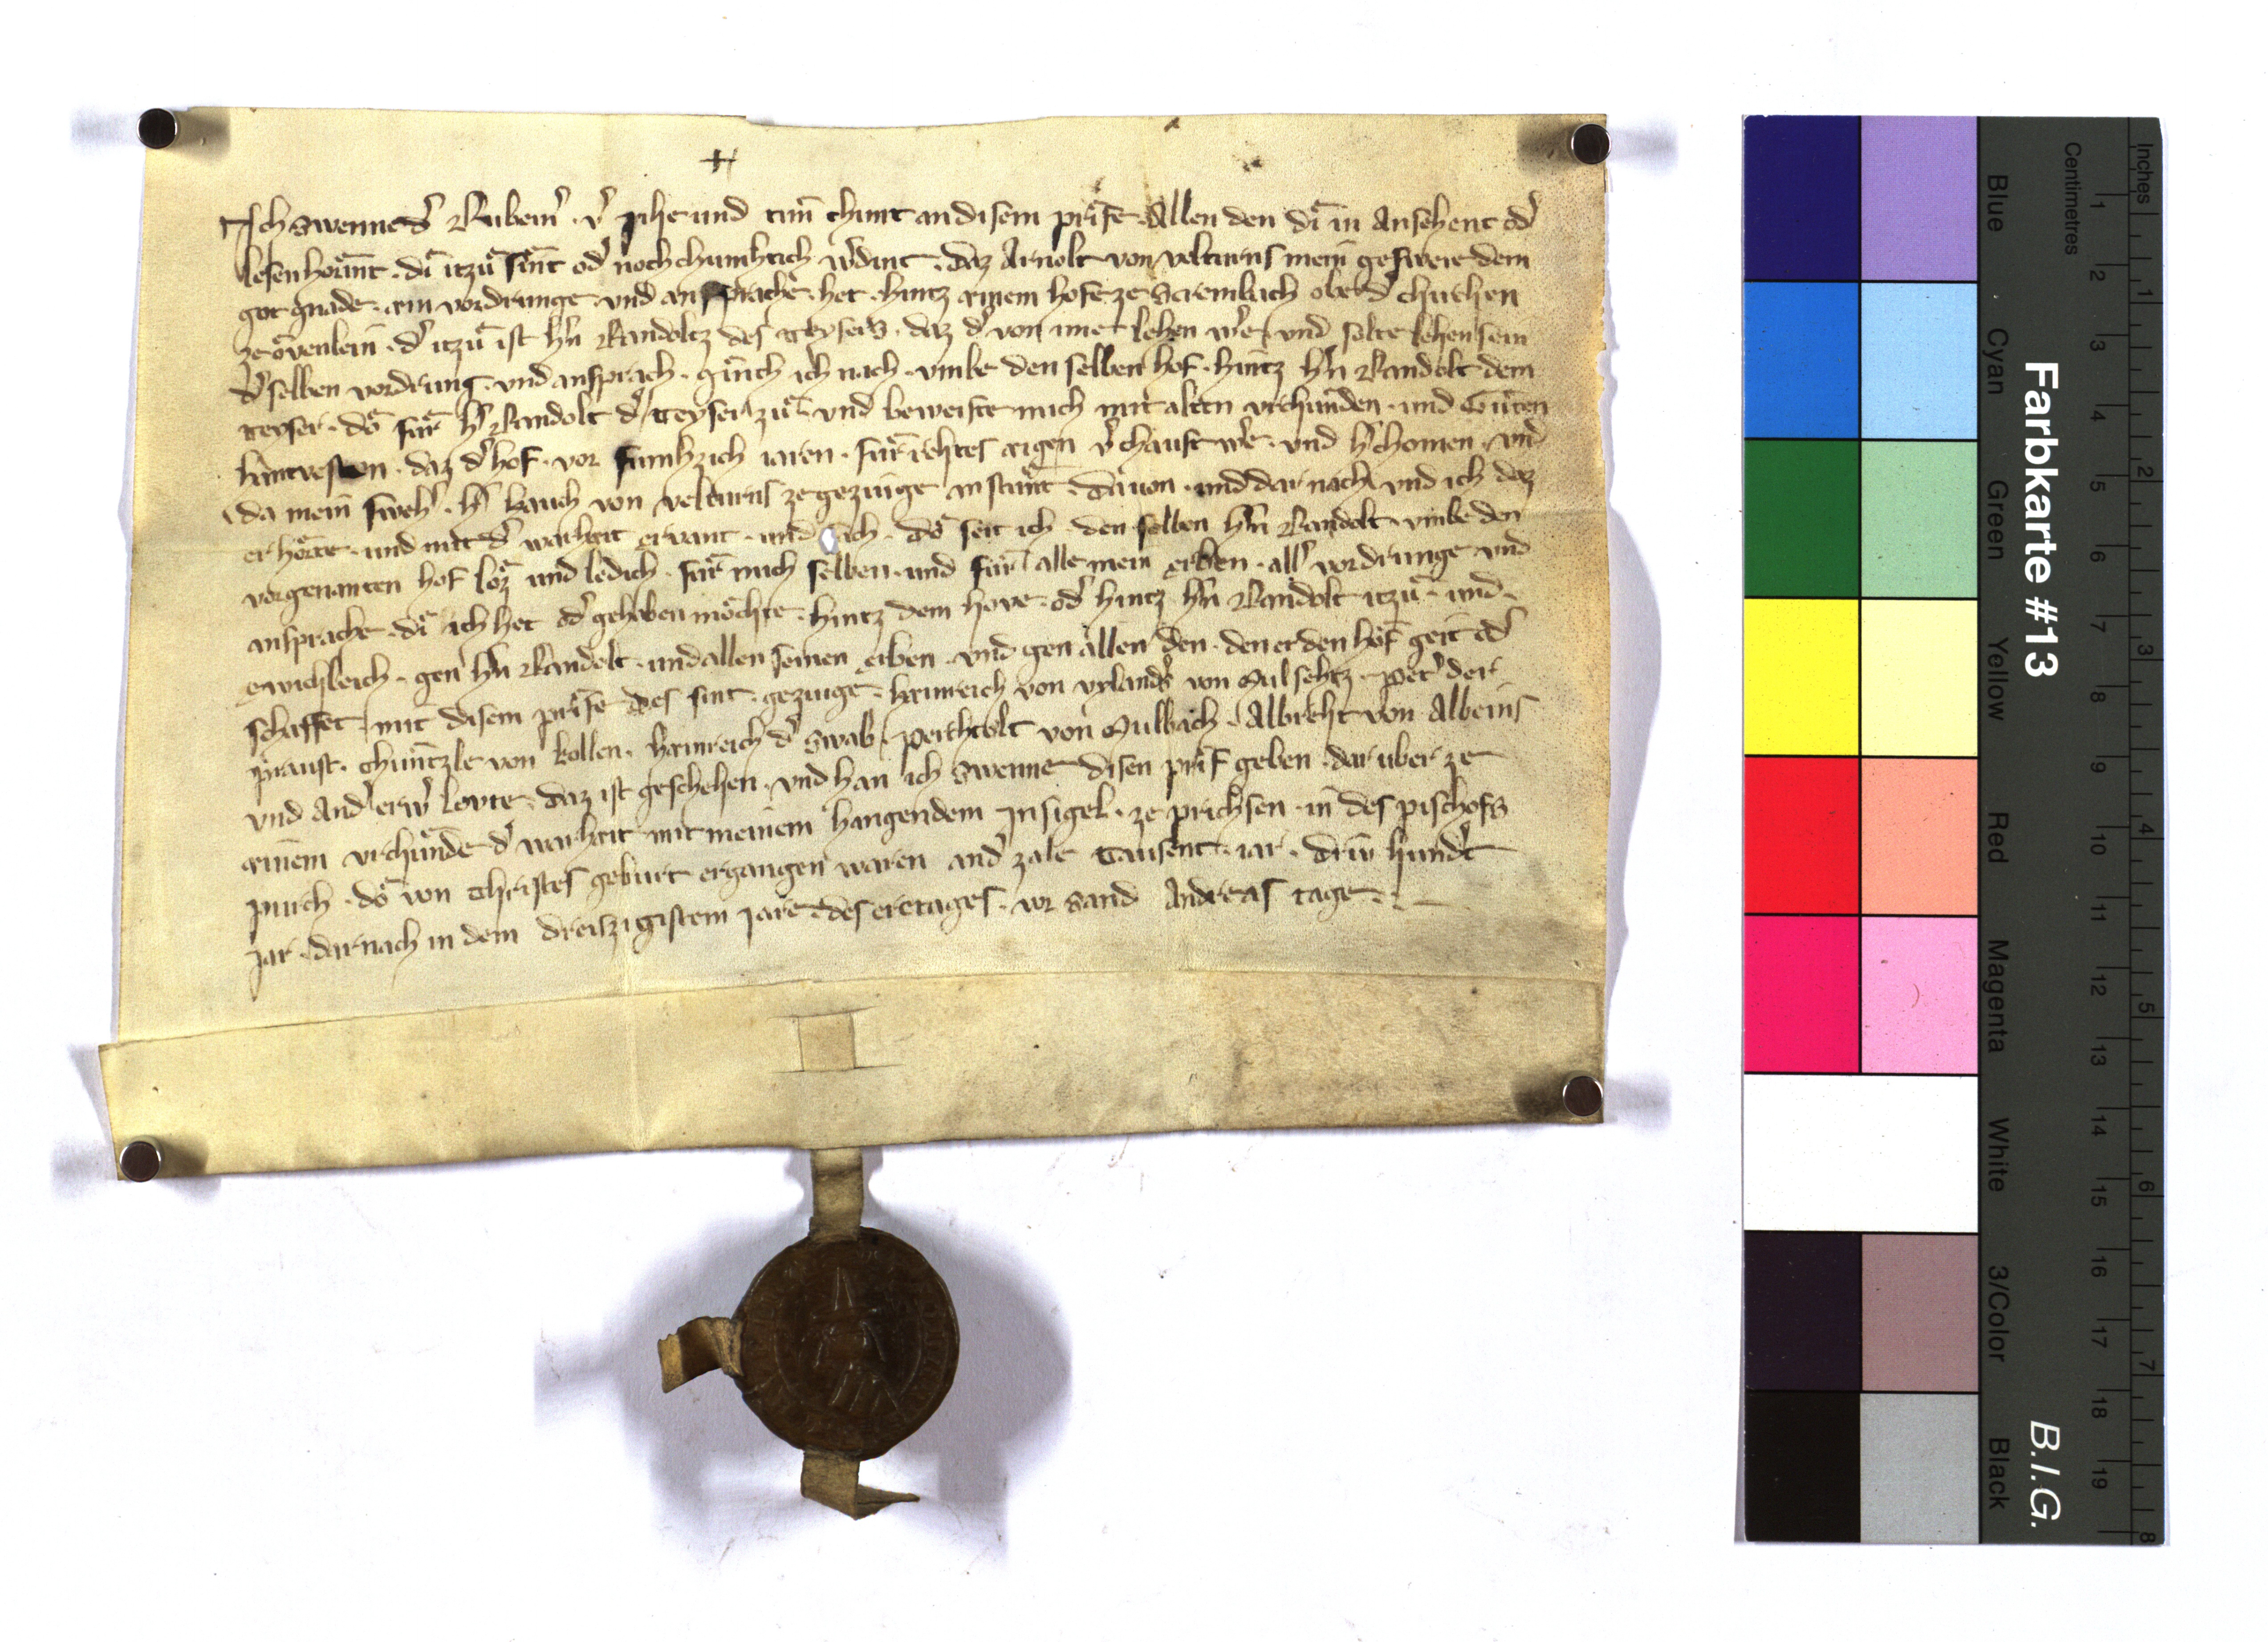 Ich Swenne dˀ Rubeinˀ · vˀ Jihe und tuͤn chunt an disem prife · Allen den di in Ansehent odˀ
lesen horent · di itzu sint odˀ noch chumftich wˀdent · daz Arnolt von velturns mein gesweie dem
got gnade · ain vordrunge und an sprache · het · hintz ainem hofe ze Scrembach ober dˀ chirchen
ze ovenlein · dˀ itzu ist hˀn Randoltz des teysers · daz dˀ von im et lehen wˀe · und solte lehen sein
dˀ selben vordrung · und ansprach · ginch ich nach · umbe den selben hof · hintz hˀn Randolt dem
teyser · do fur hˀ Randolt dˀ teyser zu · und beweiste mich mit alten vrchunden · und Guten
hantvesten · daz dˀ hof · vor fumfzich iaren · fur rehtes aigen vˀchauft wˀe · und hˀchomen · und
da mein swehˀ · hˀ hauch von velturns ze gezeuge an stunt · da uon · und dar nach · und ich daz
er horte · und mit dˀ warhait ervant · und sach · do seit ich · den selben hˀn Randolt · umbe den
vorgenanten hof loz und ledich · fur mich selben · und fur alle mein erben · allˀ vordrunge und
ansprache · di ich het odˀ gehaben mochte · hintz dem hove · odˀ hintz hˀn Randolt itzu · und
ewichleich · gen hˀn Randolt · und allen seinen erben · und gen allen den · den er den hof geit odˀ
schaffet · mit disem prife des sint · gezeuge · hainreich von vylandˀs von Sulsehtz · Petˀ der
praust · Chuntzle von kollen · hainreich dˀ Swab · Perhtolt von Mulbach · Albreht von Albeins
und Andˀ erwˀ levte · daz ist geschehen · und han ich Swenne disen prif geben · dar uber ze
ainem vrchunde dˀ warhait mit meinem hangendem Insigel · ze prichsen · in des pischofs
purch · do von Christes geburt ergangen waren andˀ zale Tausent · iar · driw hundˀt
Jar · dar nach in dem dreiszigistem Jare · des eretages · vor Sand Andreas tage ·
Farbkarte #13
B.I.G.
Blue Cyan Green Yellow Red Magenta White 3/Color Black
Centimetres
1 2 3 4 5 6 7 8 9 10 11 12 13 14 15 16 17 18 19
Inches
1 2 3 4 5 6 7 8